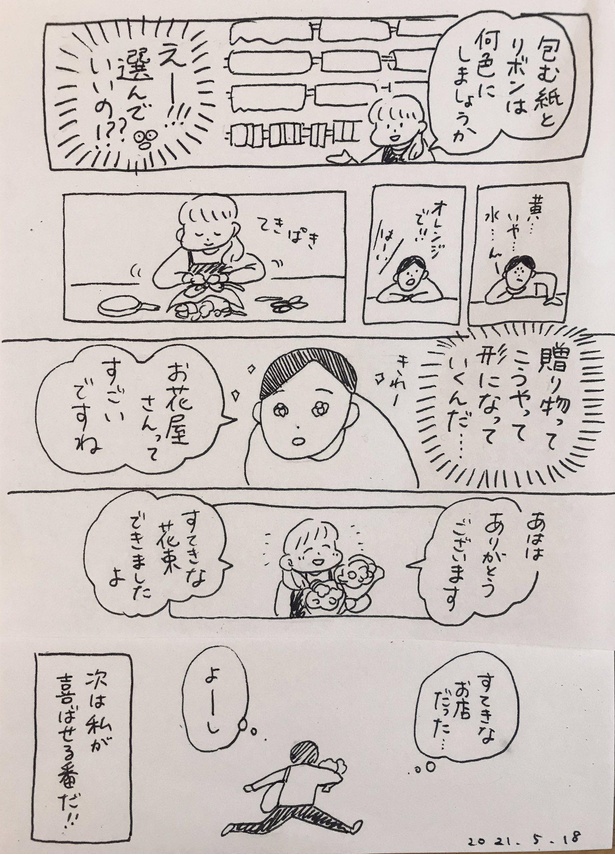 包む紙と
リボンは
何色に
しましょうか
えー!!!
選んで
いいの!??
黄…
いや…
水…ん…
オレンジ
で!!
はーい
てきぱき
贈り物って
こうやって
形になって
いくんだ……
きわー
お花屋
さんって
すごい
ですね
あはは
ありがとう
ございます
すてきな
花束
できました
よ
すてきな
お店
だった…
よーし
次は私が
喜ばせる番だ!!
2021.5.18